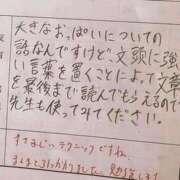 大きなおっぱいについての
話なんですけど文頭に強
い言葉を置くことによって文章
を最後まで読んでもらえるので
先生も使ってみてください。
すさまじいテクニックですね